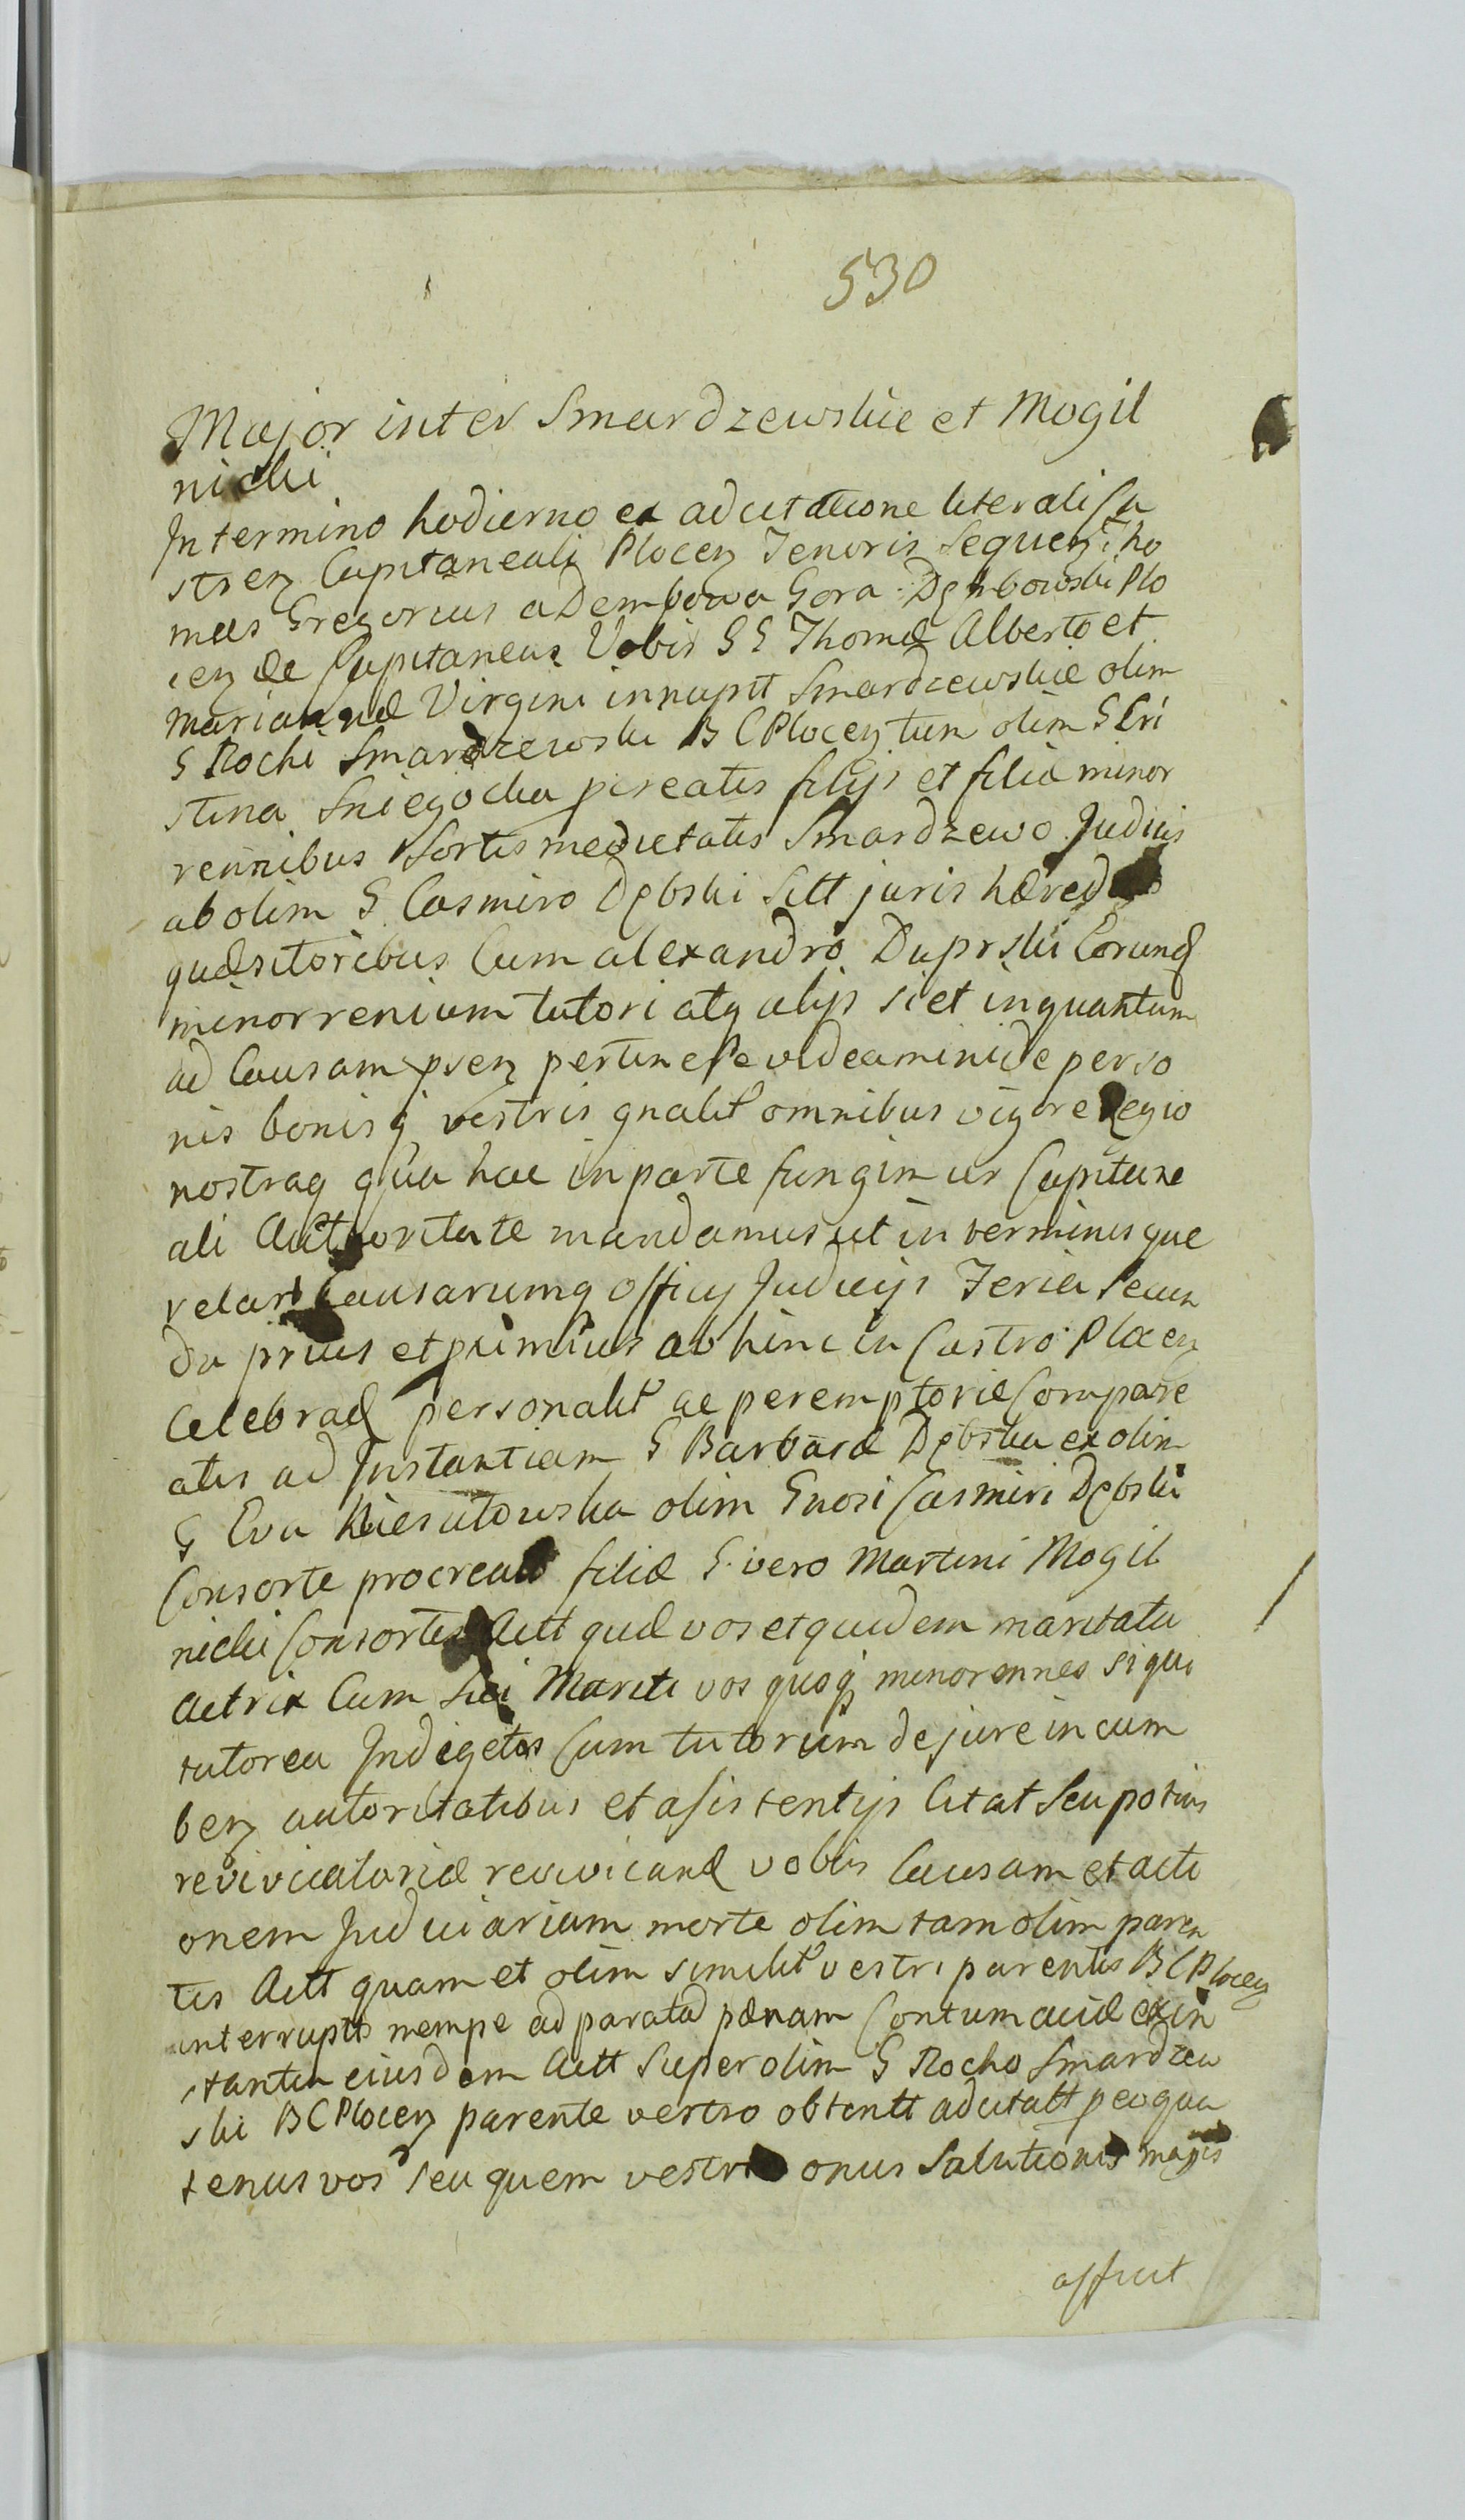 530
Major inter Smardzewskie et Mogil
nicki
In termino hodierno ex adcitatione literali Ca
stren Capitaneali Plocen Tenoris Sequen Tho
mas Gregorius a Dembowa Gora Dembowski Plo
cen &c Capitaneus Vobis GG Thomæ Alberto et
Mariannæ Virgini innupt Smardzewskie olim
G Rochi Smardzewski B C Plocen tum olim G Cri
stina Sniegocka pcreatis filijs et filiæ minor
rennibus Sortis medietatis Smardzewo Judicis
ab olim G Casmiro Dębski Sitt juris hæred
quæsitoribus Cum alexandro Duprski Eorund
minorrenium tutori atq alijs si et in quantum
ad Causam psen pertinere videamini de perso
nis bonisq vestris gnalit omnibus vigore Regio
nostraq qua hac in parte fungimur Capitane
ali Authoritate mandamus ut in terminis que
relar Causarumq officij Judicijs Feria Secun
da prius et primius ab hinc in Castro Plocen
Celebrand personalit ac peremptorie Compare
atis ad Instantiam G Barbaræ Dębska ex olim
G Eva olim Gnosi Casmiri Dębski
Consorte procreat filiæ G vero Martini Mogil
nicki Consortis Actt quæ vos et quidem maritata
actrix Cum Sui Mariti vos quoq minorennes si qui
tutorea Indigetis Cum tutorum de jure incum
ben autoritatibus et asistentijs Citat Seu potius
revivicatoriæ revivicand vobis Causam et acti
onem Judiciariam morte olim tam olim paren
tis Actt quam et olim similit vestri parentis B C Plocen
interrupts nempe ad paratad pænam Contumaciæ ex in
stantia eiusdem Actt Super olim G Rocho Smardzew
ski B C Plocen parente vestro obtentt adcitatt peo qua
tenus vos seu quem vestr onus Salutionis magis
affuit